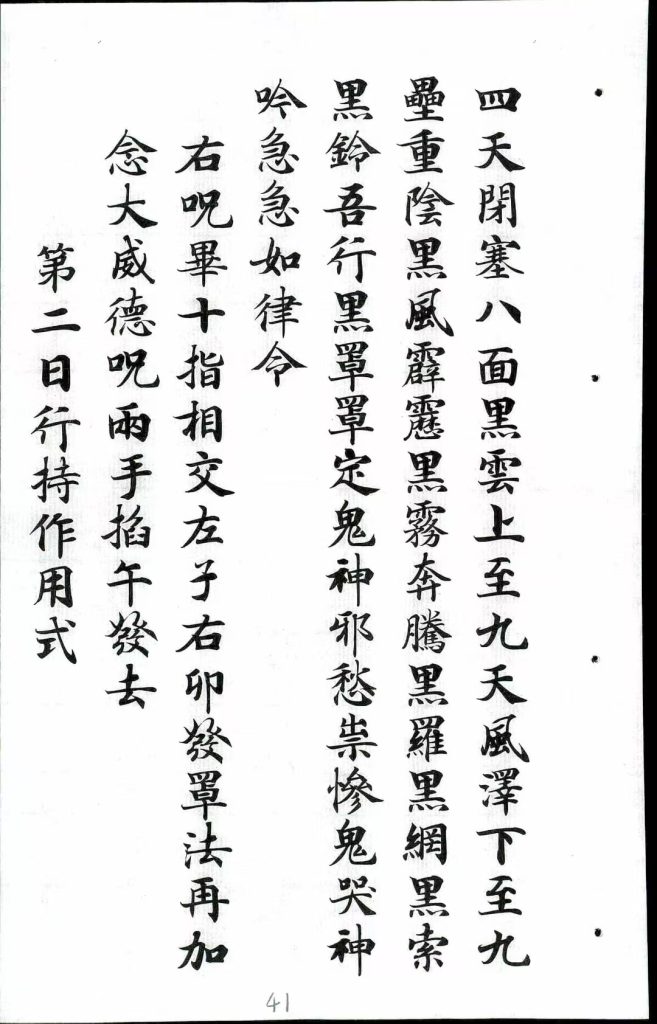 四天閉塞八面黑雲上至九天風澤下至九
壘重陰黑風霹靂黑霧奔騰黑羅黑網黑索
黑鈴吾行黑罩罩定鬼神邪愁祟慘鬼哭神
吟急急如律令
右呪畢十指相交左子右卯發罩法再加
念大威德呪兩手掐午發去
第二日行持作用式
41